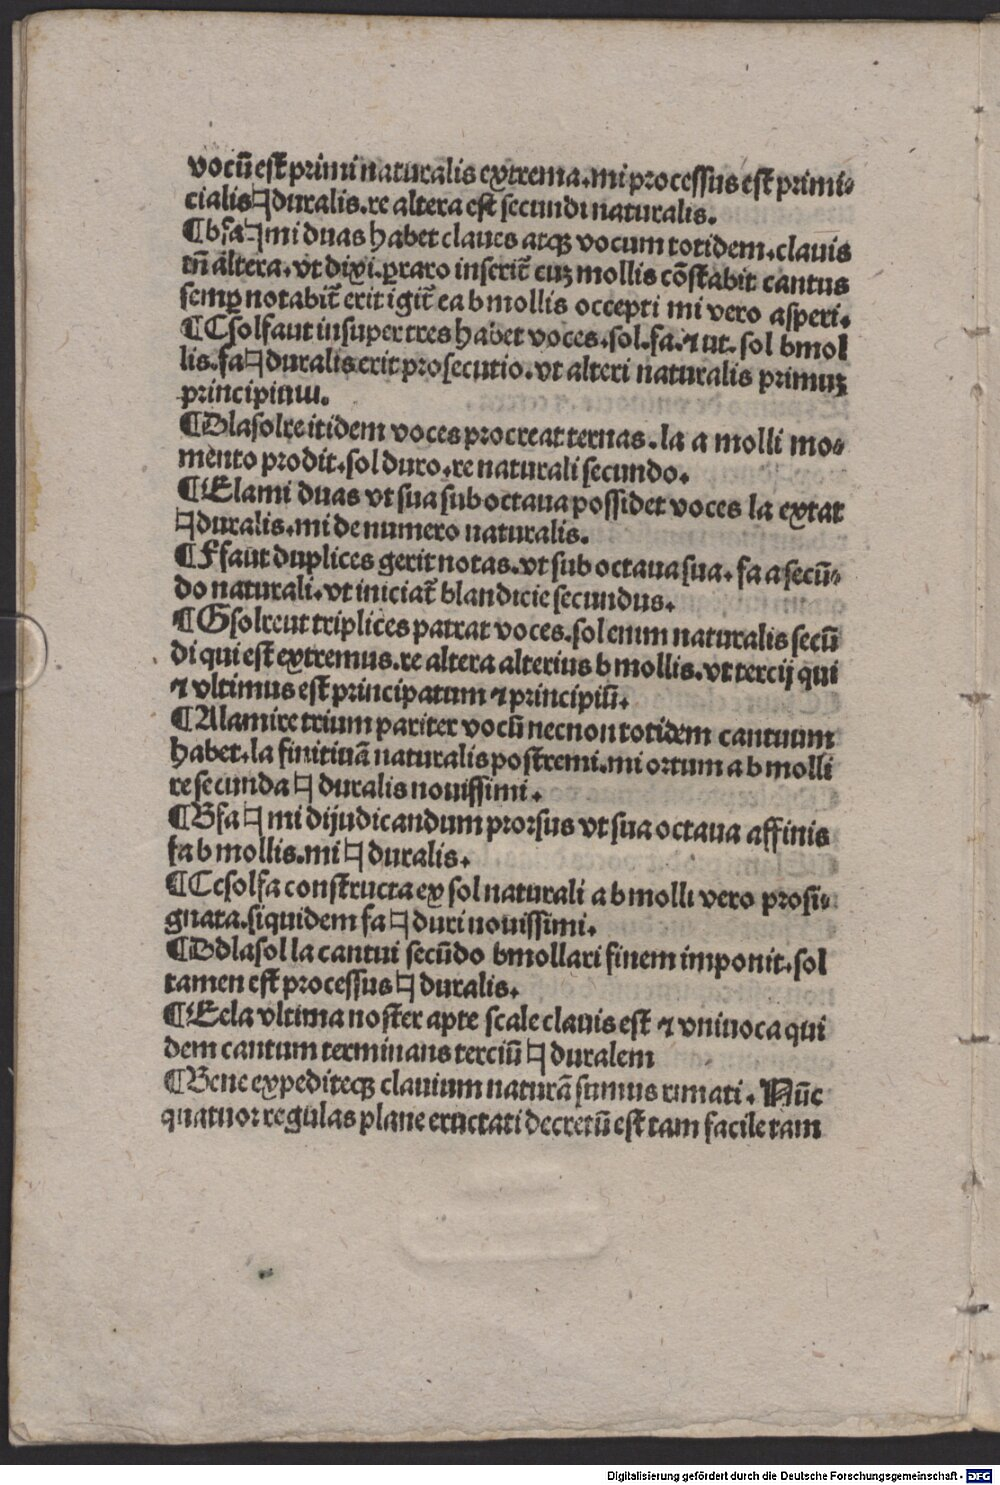 vocū est primi naturalis extrema. mi processus est primi⸗
cialis ♮ duralis. re altera est secundi naturalis.
¶ bfa♮mi duas habet claues atqꝫ vocum totidem. clauis
tñ altera. vt dixi. ꝑraro inserit̄ cuꝫ mollis cōstabit cantus
semꝑ notabit̄ erit igit̄ ea b mollis occepti mi vero asperi.
¶ Csolfaut insuper tres habet voces. sol. fa. ⁊ ut. sol bmol
lis. fa ♮ duralis erit prosecutio. vt alteri naturalis primuꝫ
principium.
¶ Dlasolre itidem voces procreat ternas. la a molli mo⸗
mento prodit. sol duro. re naturali secundo.
¶ Elami duas vt sua sub octaua possidet voces la extat
♮ duralis. mi de numero naturalis.
¶ Ffaut duplices gerit notas. vt sub octaua sua. fa a secū⸗
do naturali. vt iniciat̄ blandicie secundus.
¶ Gsolreut triplices patrat voces. sol enim naturalis secū
di qui est extremus. re altera alterius b mollis. vt tercij qui
⁊ vltimus est principatum ⁊ principiū.
¶ Alamire trium pariter vocū necnon totidem cantuum
habet. la finitiuā naturalis postremi. mi ortum a b molli
re secunda ♮ duralis nouissimi.
¶ Bfa ♮ mi dijudicandum prorsus vt sua octaua affinis
fa b mollis. mi ♮ duralis.
¶ Ccsolfa constructa ex sol naturali a b molli vero prosi⸗
gnata. siquidem fa ♮ duri nouissimi.
¶ Ddlasol la cantui secūdo bmollari finem imponit. sol
tamen est processus ♮ duralis.
¶ Eela vltima noster apte scale clauis est ⁊ vniuoca qui
dem cantum terminans terciū ♮ duralem
¶ Bene expediteqꝫ clauium naturā sumus rimati. Nūc
quatuor regulas plane eructati decretū est tam facile tam
Digitalisierung gefördert durch die Deutsche Forschungsgemeinschaft - DFG